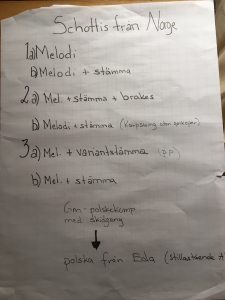 Schottis från Norge
1a) Melodi
b) Melodi + stämma
2a) Mel. + stämma + brakes
b) Melodi + stämma
3a) Mel. + variantstämma (p.p)
b) Mel. + stämma
Gm - polskekomp
med
polska från Eda (stillastående